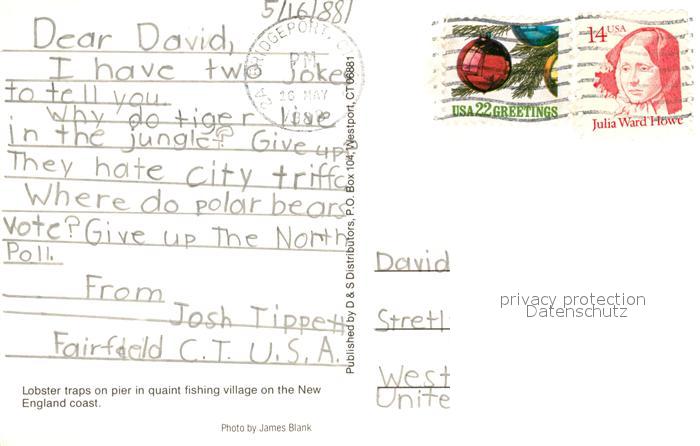 5/16/88
Dear David,
I have two joke
to tell you.
Why do tiger live
in the jungle? Give up?
They hate city triffc
Where do polar bears
vote? Give up The North
Poll.
From
Josh Tippett
Fairfield C.T. U.S.A.
Lobster traps on pier in quaint fishing village on the New
England coast.
Photo by James Blank
Published by D & S Distributors, P.O. Box 104, Westport, CT 06881
BRIDGEPORT, CT
PM
16 MAY
1988
USA 22 GREETINGS
14 USA
Julia Ward Howe
David
Stretl
West
Unite
privacy protection
Datenschutz